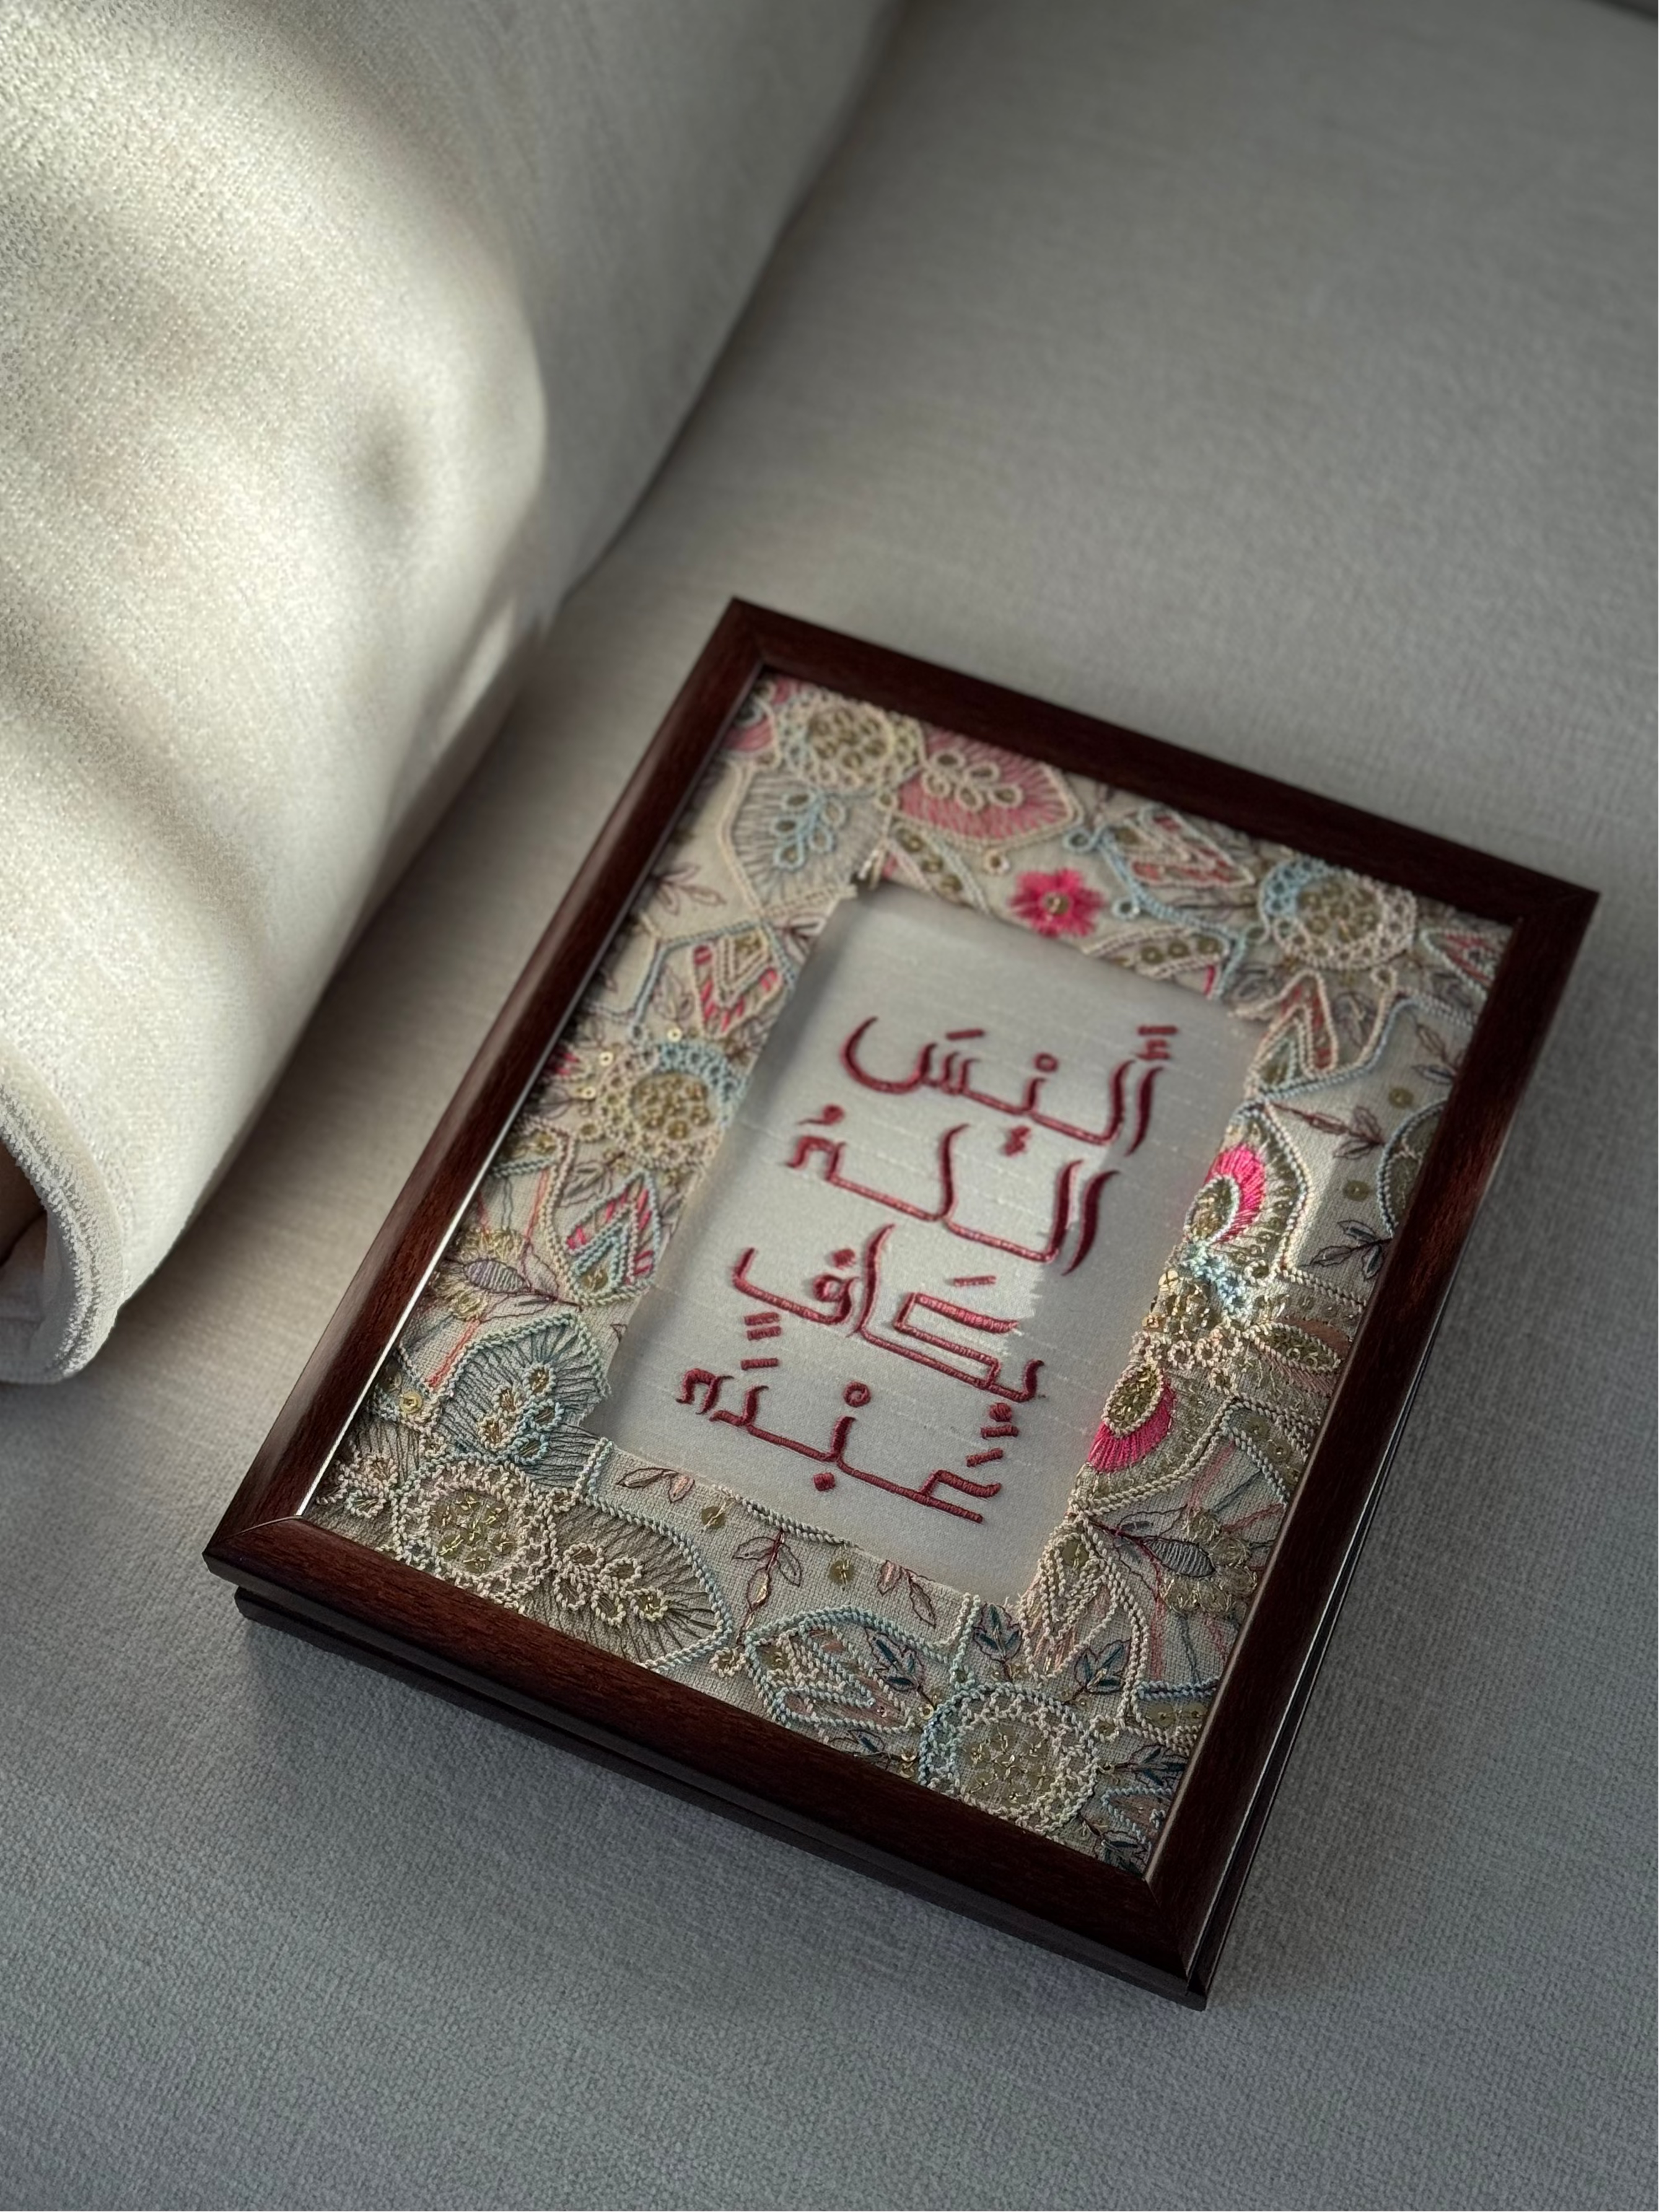 أَلَيْسَ
اللهُ
بِكَافٍ
عَبْدَه